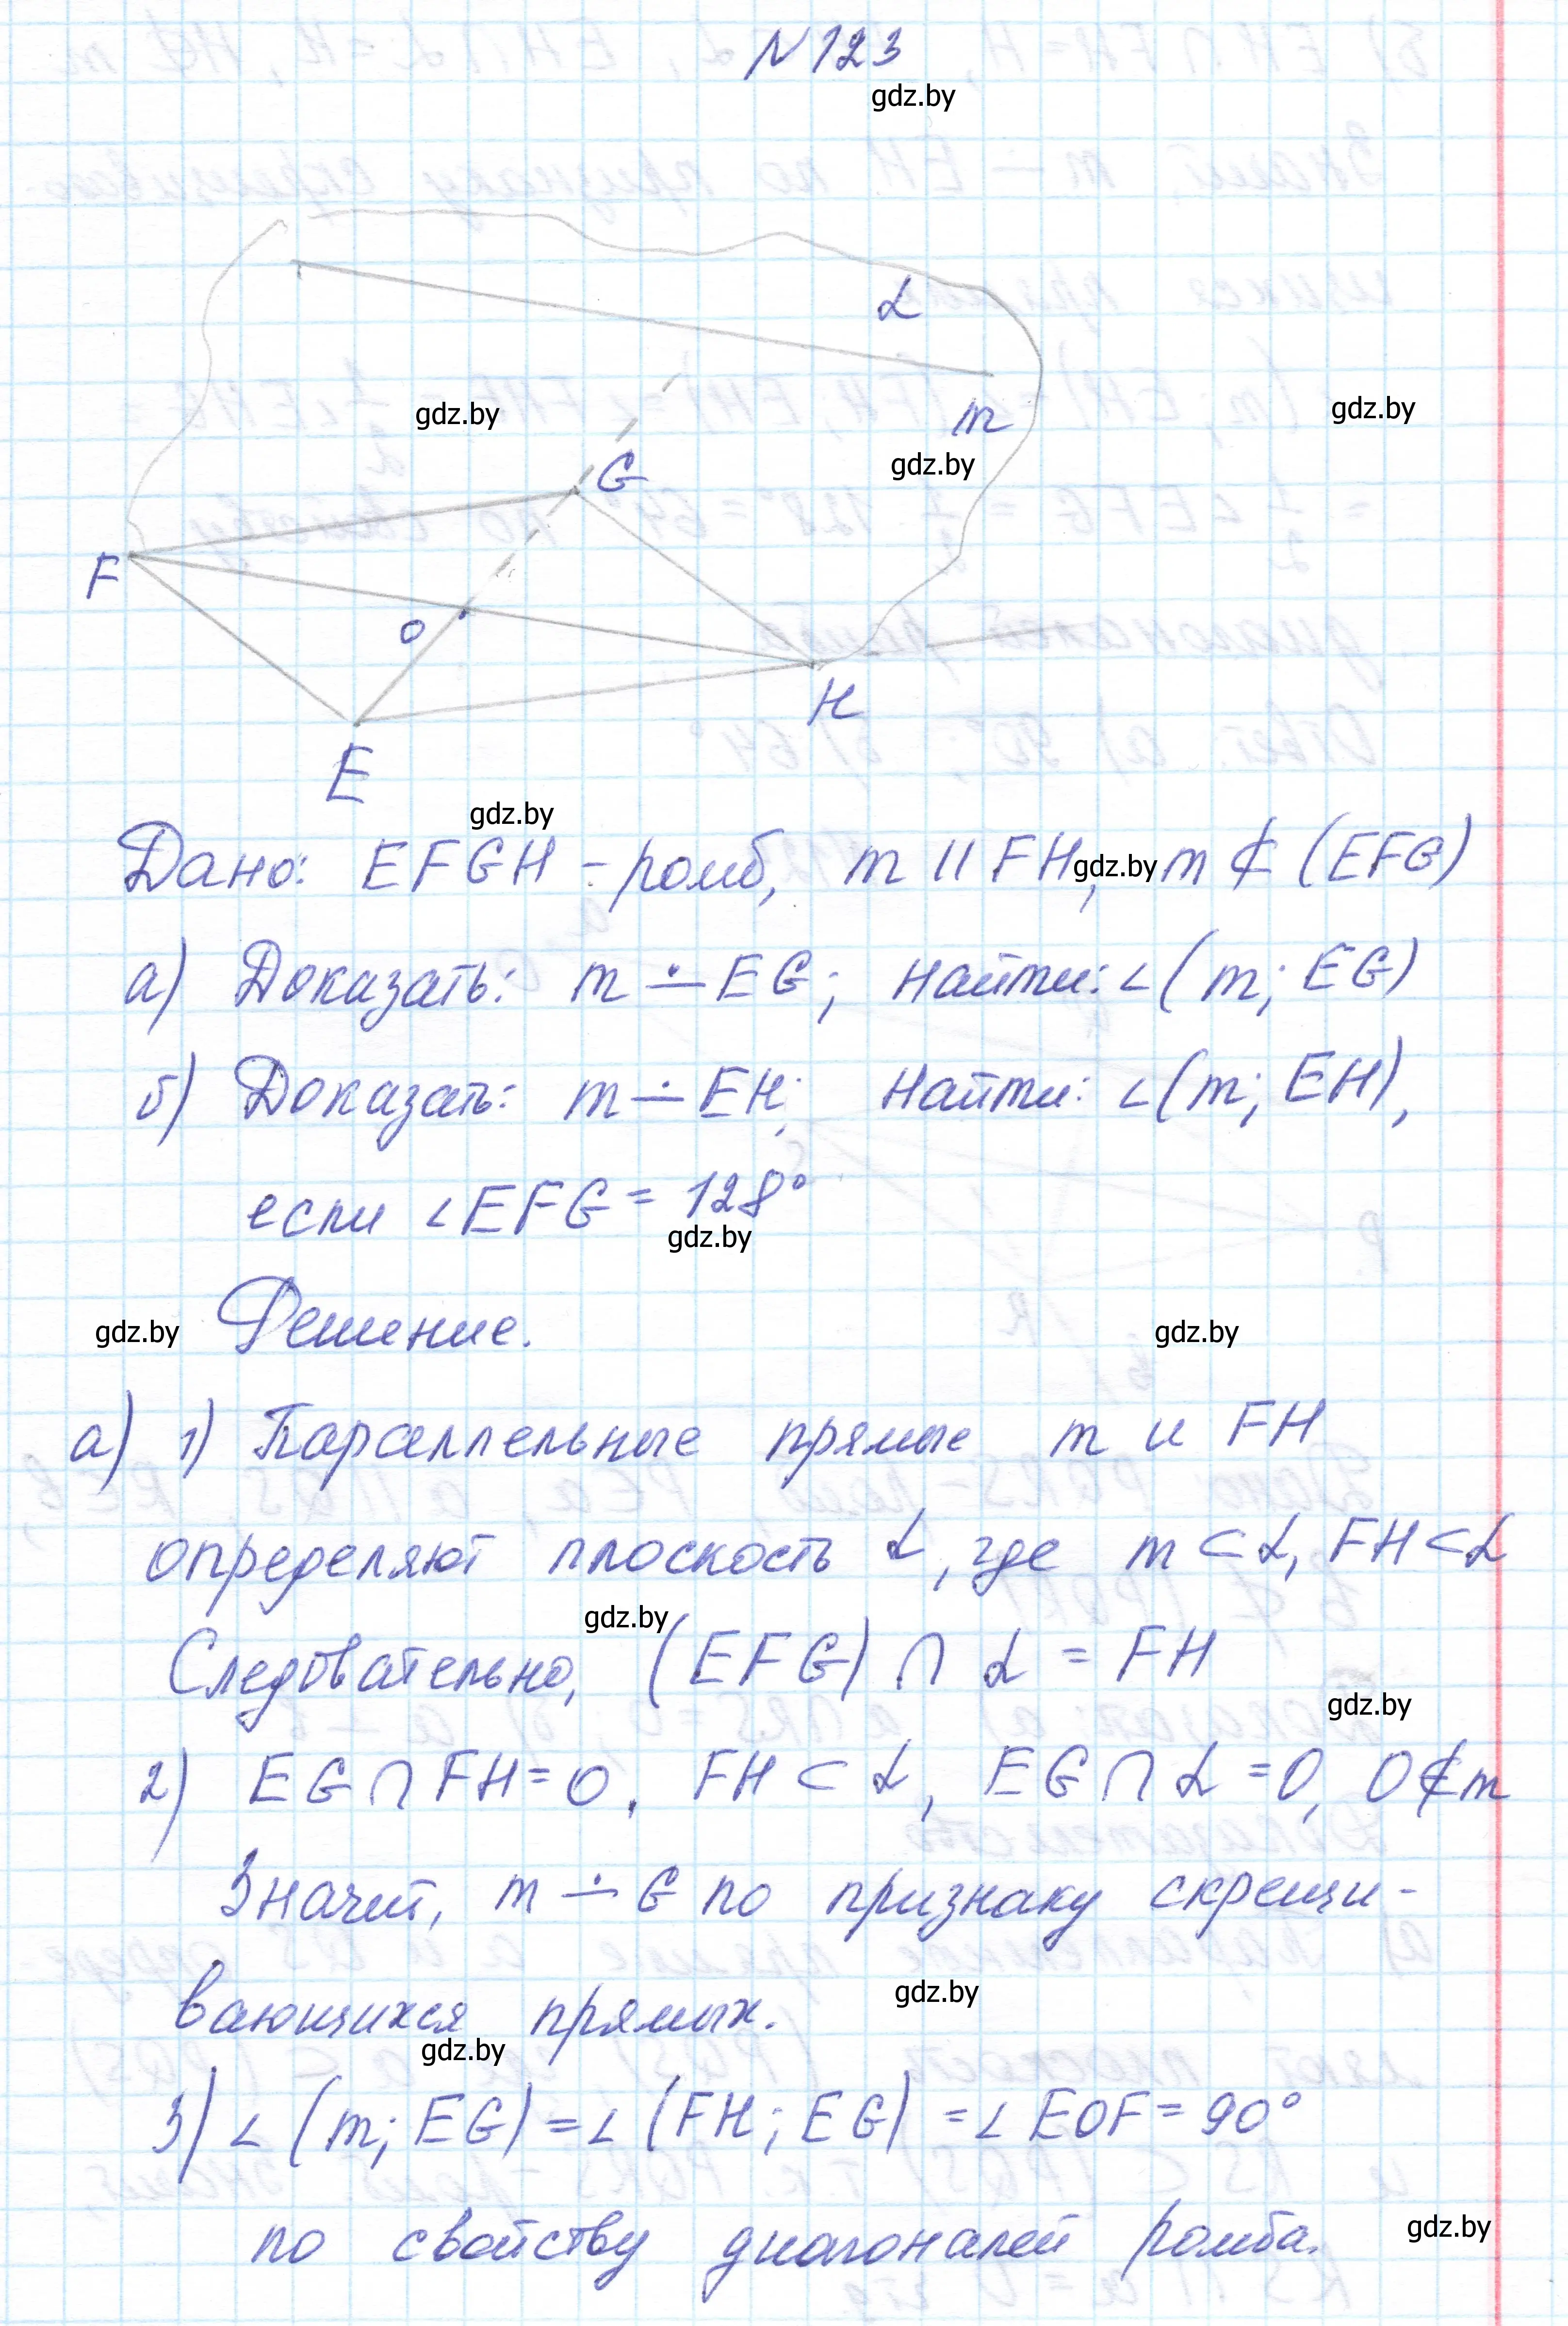 N 123
gdz.by
α
gdz.by
gdz.by
m
gdz.by
G
F
O
H
E
gdz.by
Дано: EFGH - ромб, m || FH, m ⊄ (EFG)
gdz.by
а) Доказать: m ∸ EG; Найти: ∠(m; EG)
б) Доказать: m ∸ EH; Найти: ∠(m; EH),
если ∠EFG = 128°
gdz.by
Решение.
gdz.by
gdz.by
а) 1) Параллельные прямые m и FH
определяют плоскость α, где m ⊂ α, FH ⊂ α
gdz.by
Следовательно, (EFG) ∩ α = FH
gdz.by
2) EG ∩ FH = O, FH ⊂ α, EG ∩ α = O, O ∉ m
Значит, m ∸ G по признаку скрещи-
вающихся прямых.
gdz.by
gdz.by
3) ∠(m; EG) = ∠(FH; EG) = ∠EOF = 90°
по свойству диагоналей ромба.
gdz.by